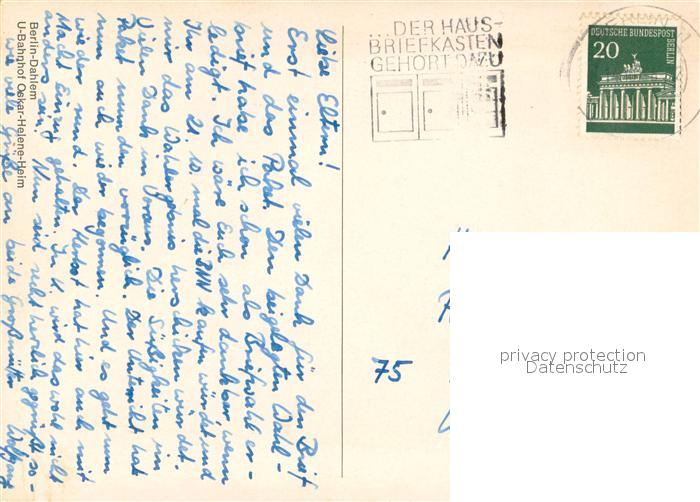 Berlin-Dahlem
U-Bahnhof Oskar-Helene-Heim
...DER HAUS-
BRIEFKASTEN
GEHÖRT DAZU
DEUTSCHE BUNDESPOST
BERLIN
20
Liebe Eltern!
Erst einmal vielen Dank für den Brief
und das Paket. Den beigelegten Wahl-
brief habe ich schon als Briefwahl er-
ledigt. Ich wäre Euch sehr dankbar wenn
Ihr am 21. 10. mal die BNN kaufen würdet und
mir das Wahlergebnis herschicken würdet.
Vielen Dank im Voraus. Die Süßigkeiten im
Paket munden vorzüglich. Der Unterricht hat
nun auch wieder begonnen. Und es geht nun
wieder rund. Der Herbst hat hier auch mit
Macht Einzug gehalten. In K. wird das wohl nicht
anders sein. Nun seid recht herzlich gegrüßt so-
wie viele Grüße an beide Großmütter
Wolfgang
75
privacy protection
Datenschutz